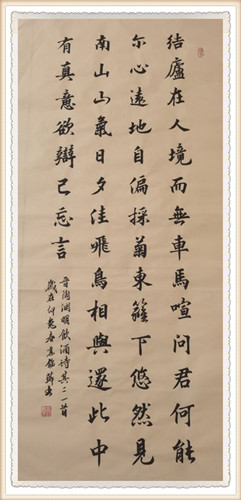 结廬在人境而無車馬喧問君何能
尓心遠地自偏採菊東籬下悠然見
南山山氣日夕佳飛鳥相與還此中
有真意欲辯已忘言
晋陶渊明飲酒诗其二一首
歲在